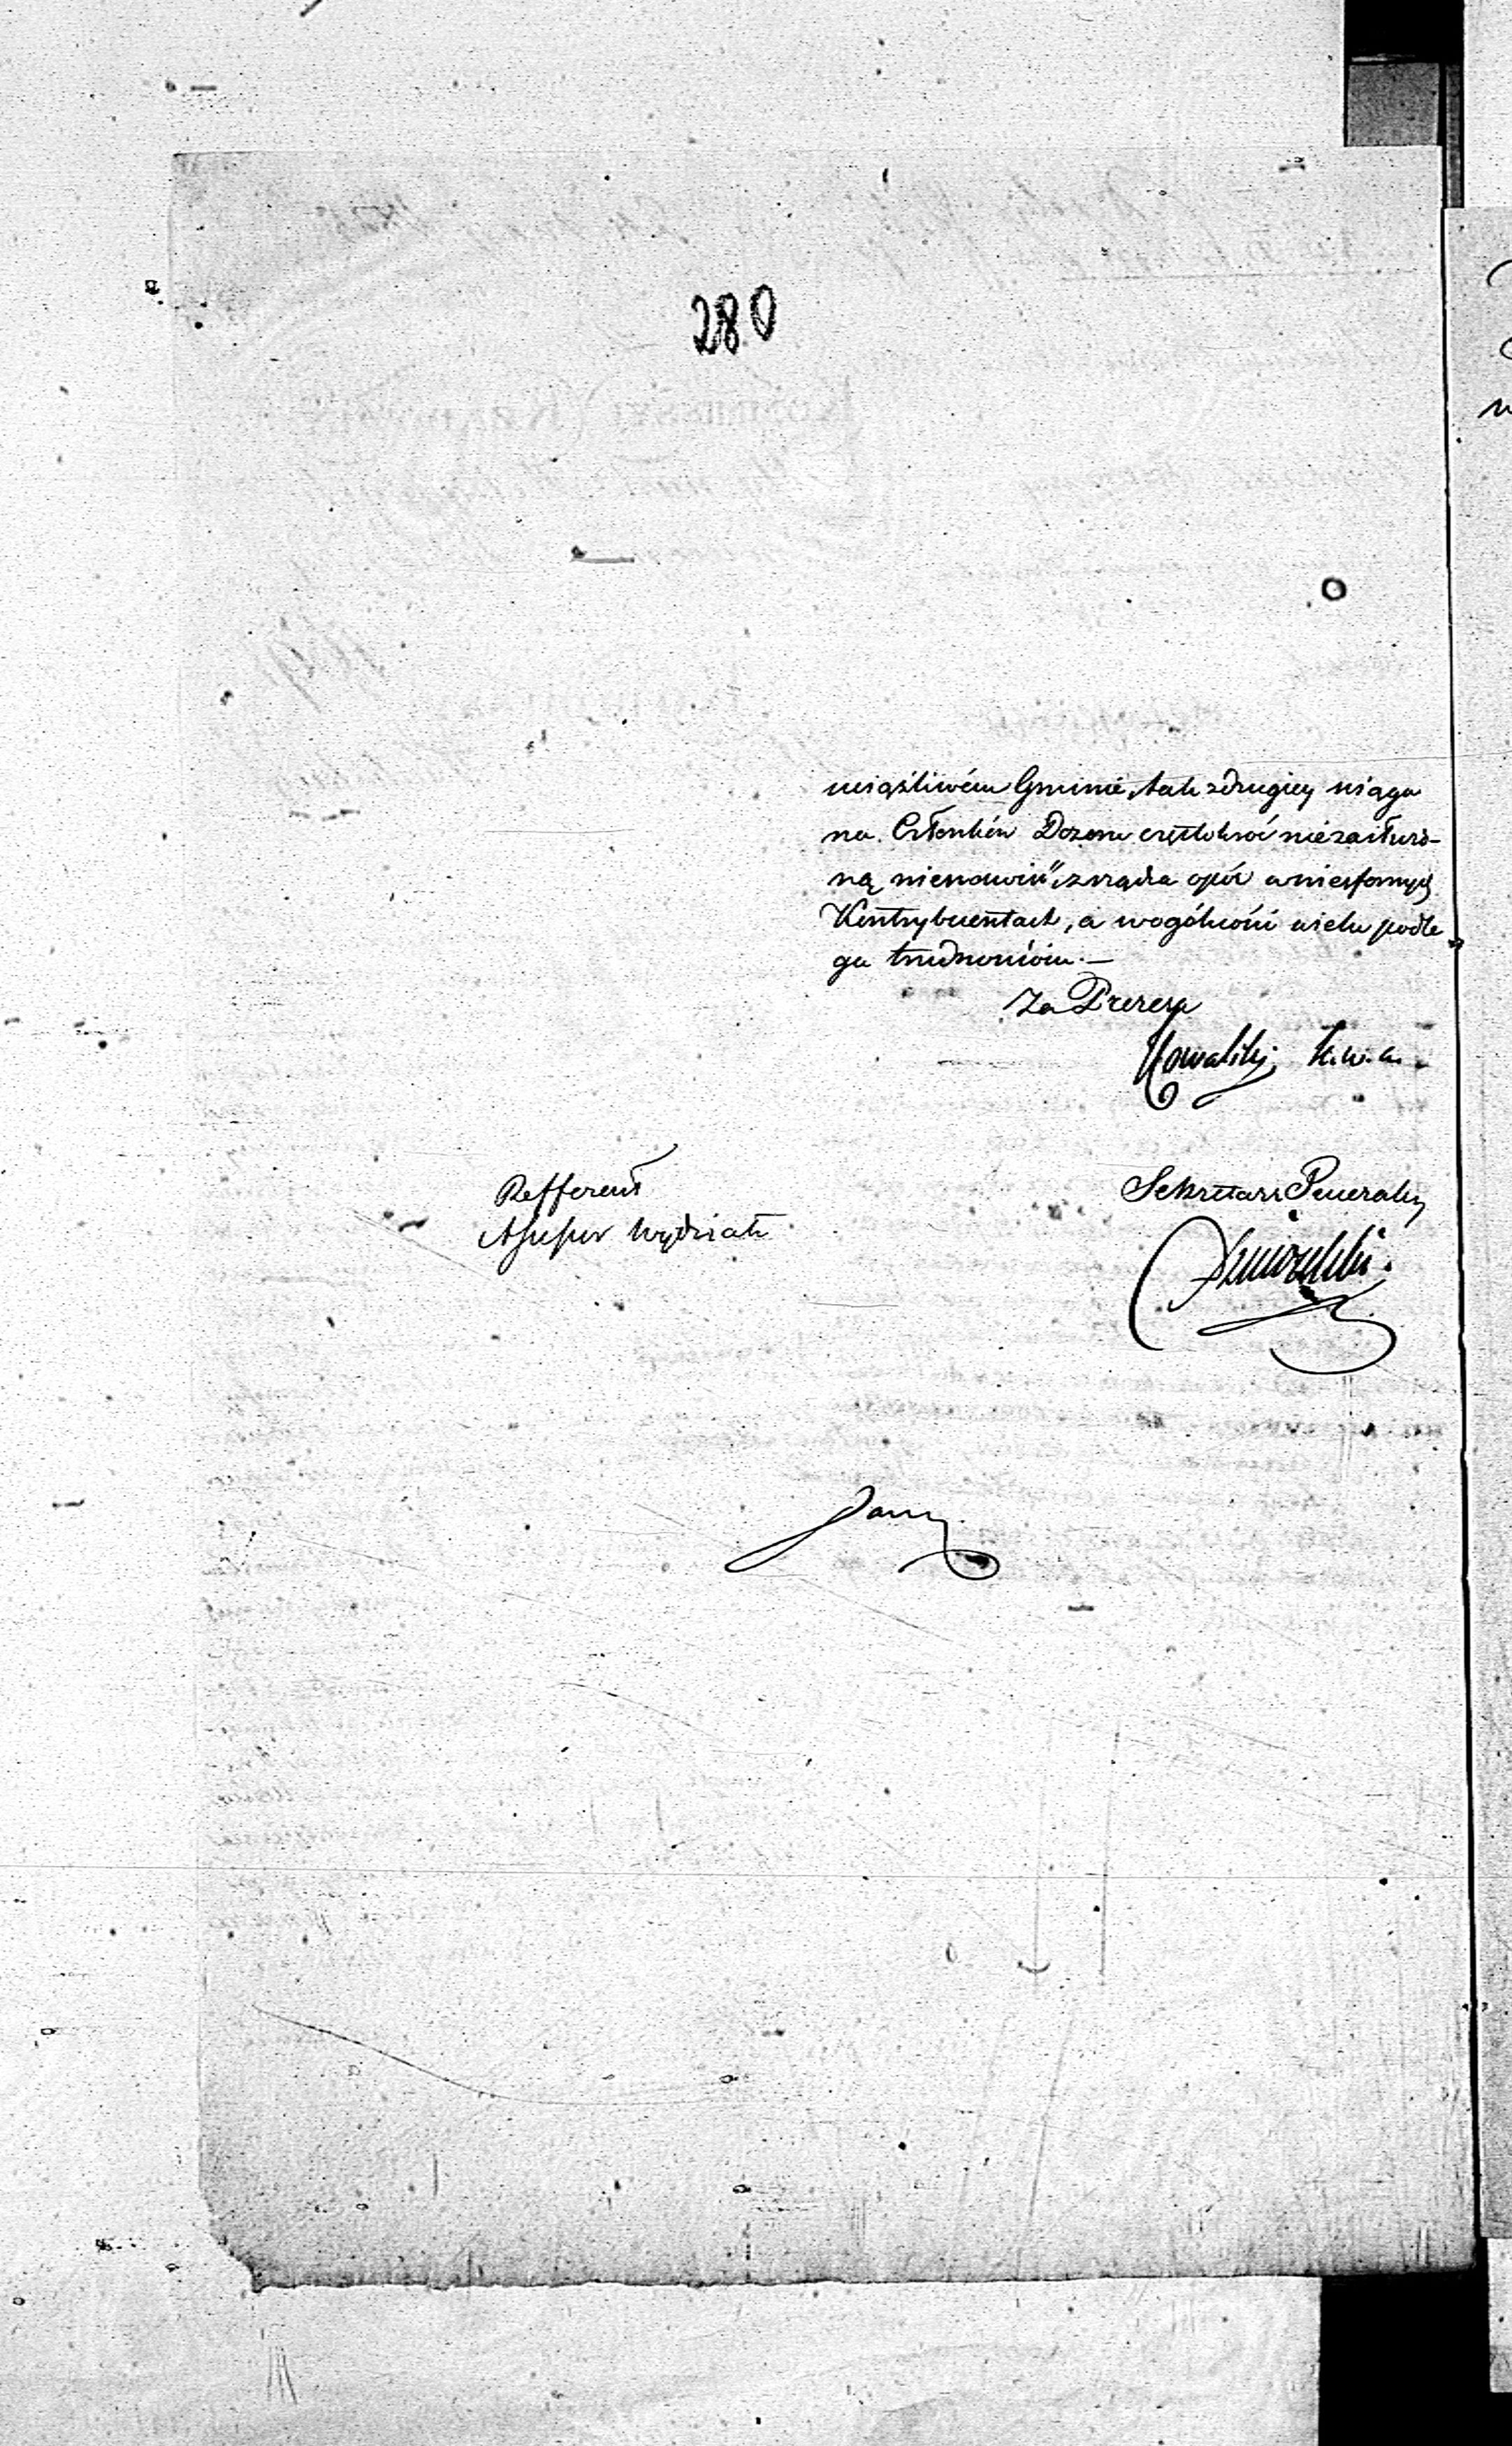 280
uciążliwém Gminie, tak zdrugiey ściąga
na Członków Dozoru częstokroć niezasłużo-
ną nienawiść, zrządza opór w niesfornych
Kontrybuentach, a wogólności wielu podle
ga trudnościom.—
Za Prezesa
Kowalski K.W.G.
Refferent
Assessor Wydziału
Sekretarz Generalny